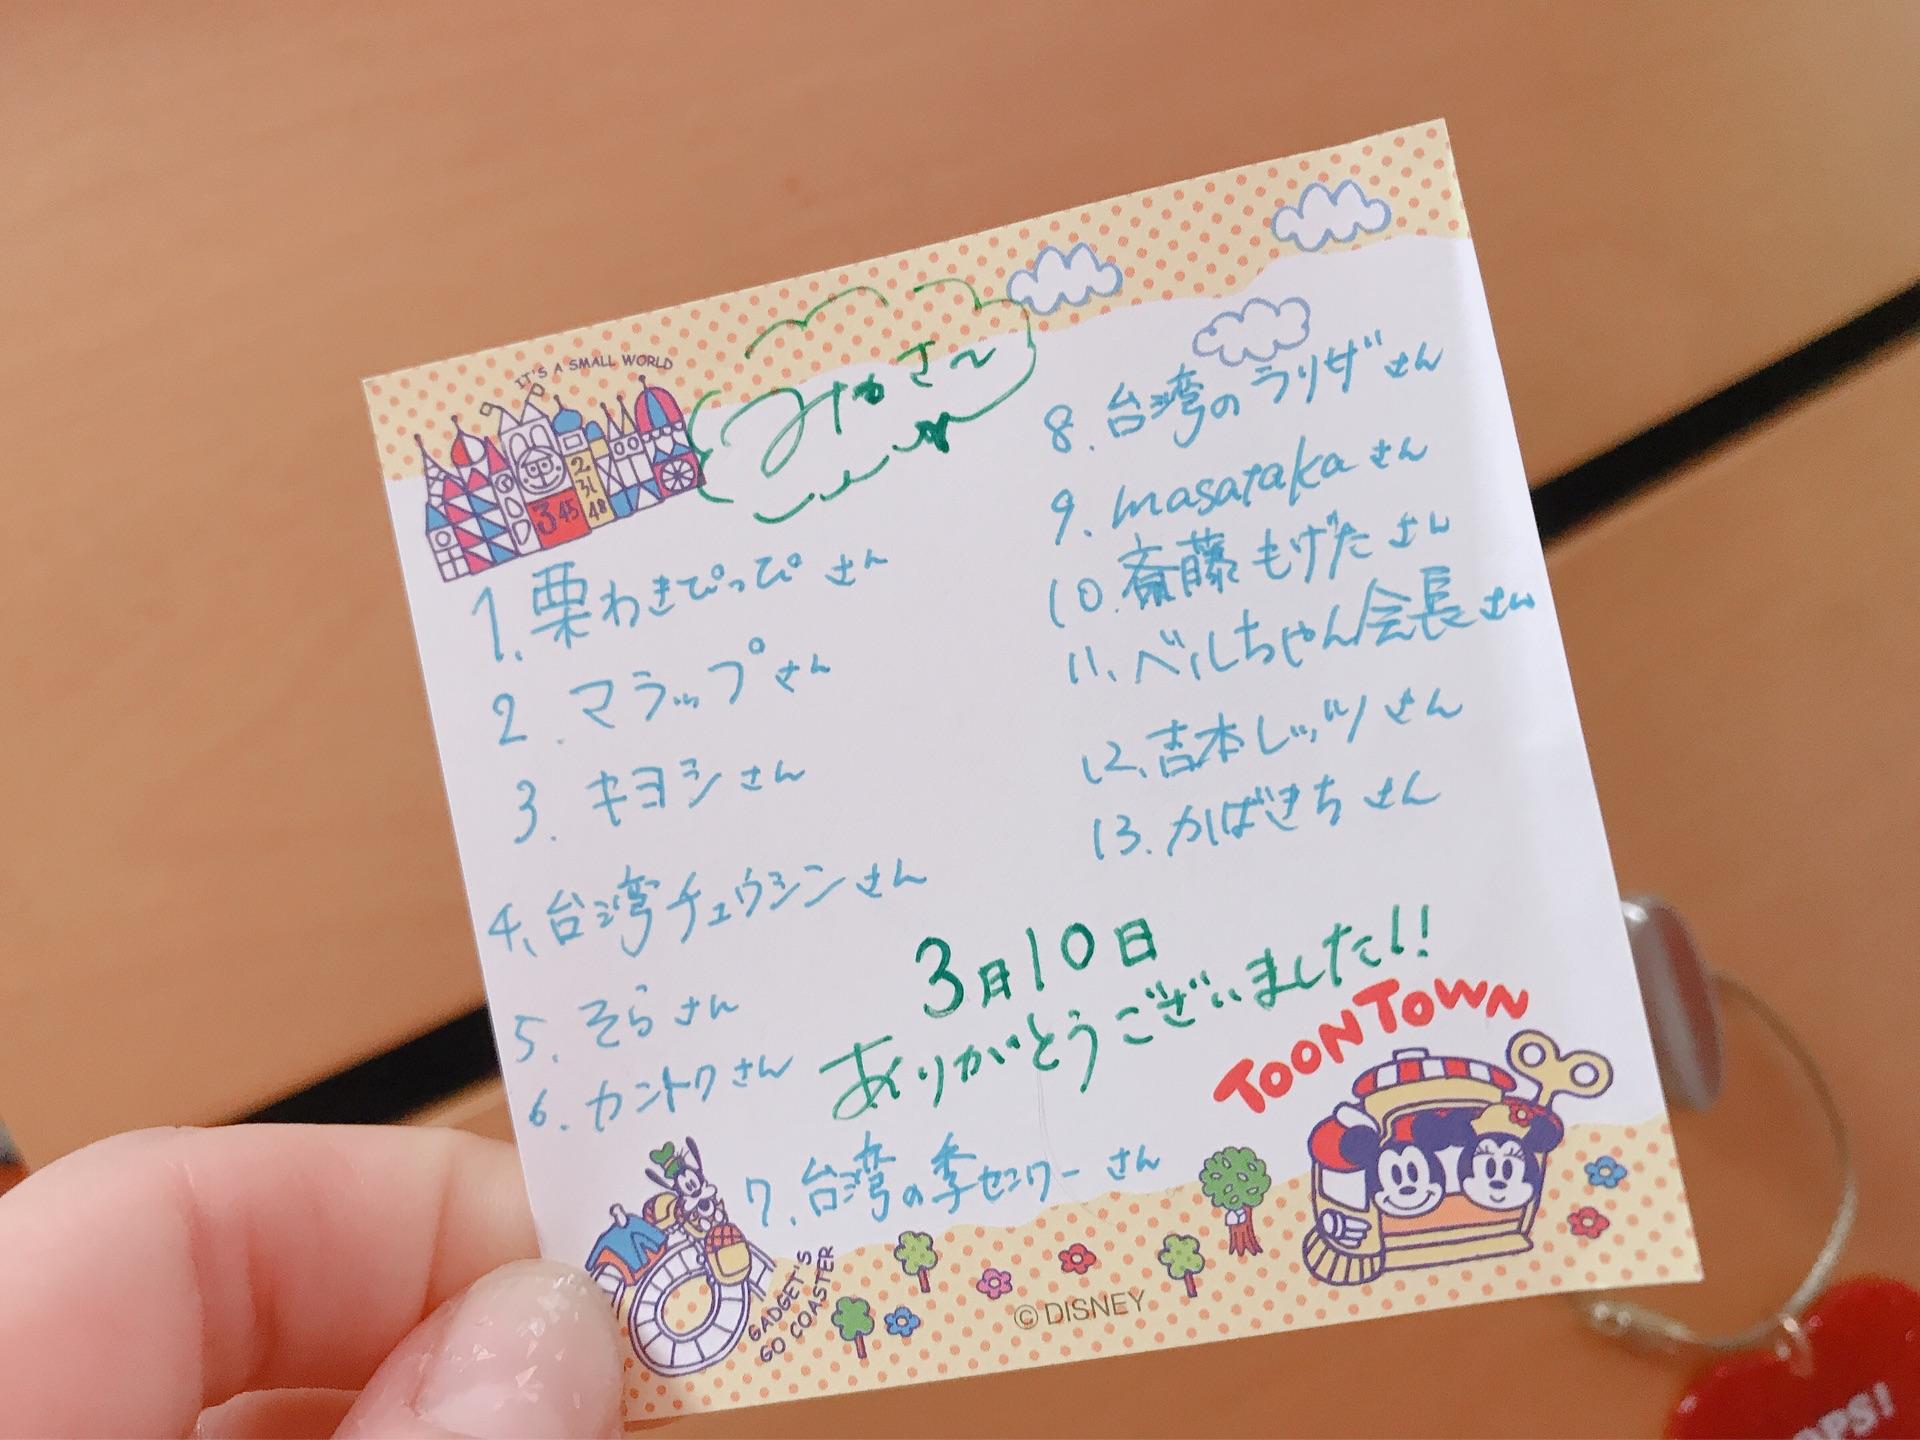 IT'S A SMALL WORLD
みやさん
1. 栗わきぴっぴ さん
2. マラップ さん
3. キヨシ さん
4. 台湾チュウシン さん
5. そら さん
6. カントク さん
7. 台湾の李センワー さん
8. 台湾の ラリザ さん
9. masataka さん
10. 斎藤 もげた さん
11. ベルちゃん会長 さん
12. 吉本レッツ さん
13. かばきち さん
3月10日
ありがとうございました!!
TOONTOWN
GADGET'S
GO COASTER
© DISNEY